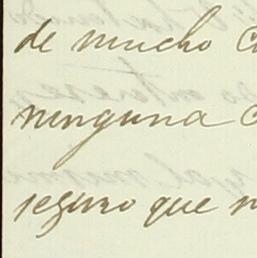 de mucho
ninguna
seguro que